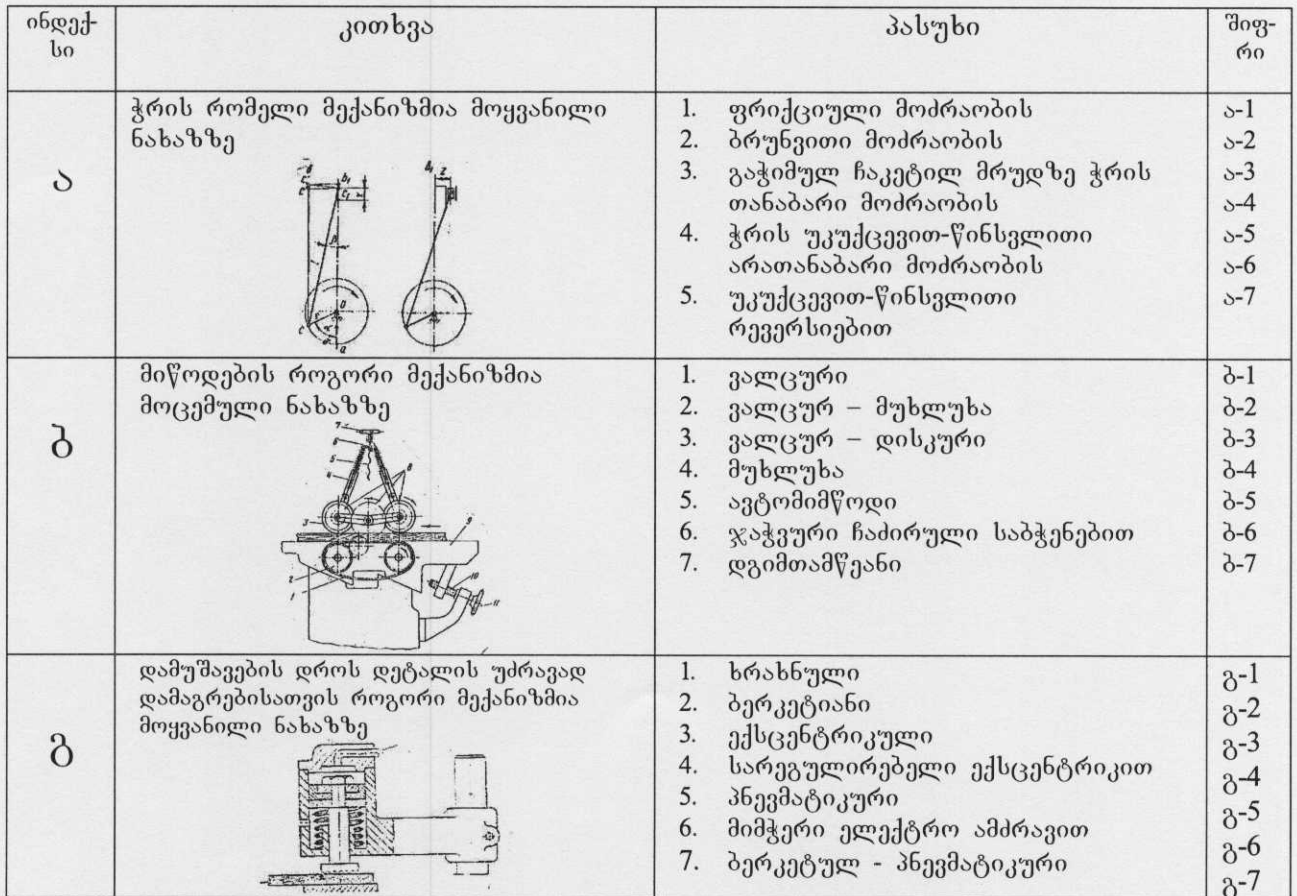 ინდექ- კითხვა პასუხი შიფ-
სი რი
ა
ჭრის რომელი მექანიზმია მოყვანილი
ნახაზზე
1. ფრიქციული მოძრაობის
2. ბრუნვითი მოძრაობის
3. გაჭიმულ ჩაკეტილ მრუდზე ჭრის
თანაბარი მოძრაობის
4. ჭრის უკუქცევით-წინსვლითი
არათანაბარი მოძრაობის
5. უკუქცევით-წინსვლითი
რევერსიებით
ა-1
ა-2
ა-3
ა-4
ა-5
ა-6
ა-7
ბ
მიწოდების როგორი მექანიზმია
მოცემული ნახაზზე
7
6
5
4
8
3
9
2
1
10
11
1. ვალცური
2. ვალცურ – მუხლუხა
3. ვალცურ – დისკური
4. მუხლუხა
5. ავტომიმწოდი
6. ჯაჭვური ჩაძირული საბჭენებით
7. დგიმთამწეანი
ბ-1
ბ-2
ბ-3
ბ-4
ბ-5
ბ-6
ბ-7
გ
დამუშავების დროს დეტალის უძრავად
დამაგრებისათვის როგორი მექანიზმია
მოყვანილი ნახაზზე
1. ხრახნული
2. ბერკეტიანი
3. ექსცენტრიკული
4. სარეგულირებელი ექსცენტრიკით
5. პნევმატიკური
6. მიმჭერი ელექტრო ამძრავით
7. ბერკეტულ - პნევმატიკური
გ-1
გ-2
გ-3
გ-4
გ-5
გ-6
გ-7